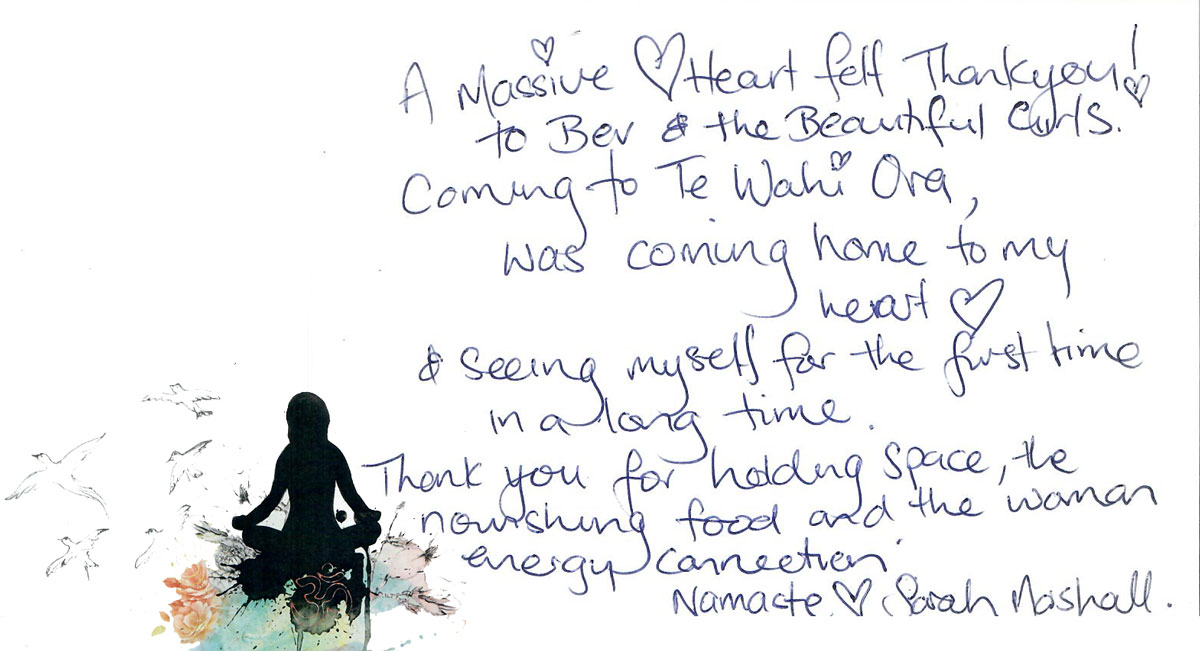 A Massive ♡ Heart felt Thankyou!
to Bev & the Beautiful Girls.
Coming to Te Wahi Ora,
was coming home to my
heart ♡
& seeing myself for the first time
in a long time.
Thank you for holding space, the
nourishing food and the woman
energy connection.
Namaste. ♡ Sarah Marshall.